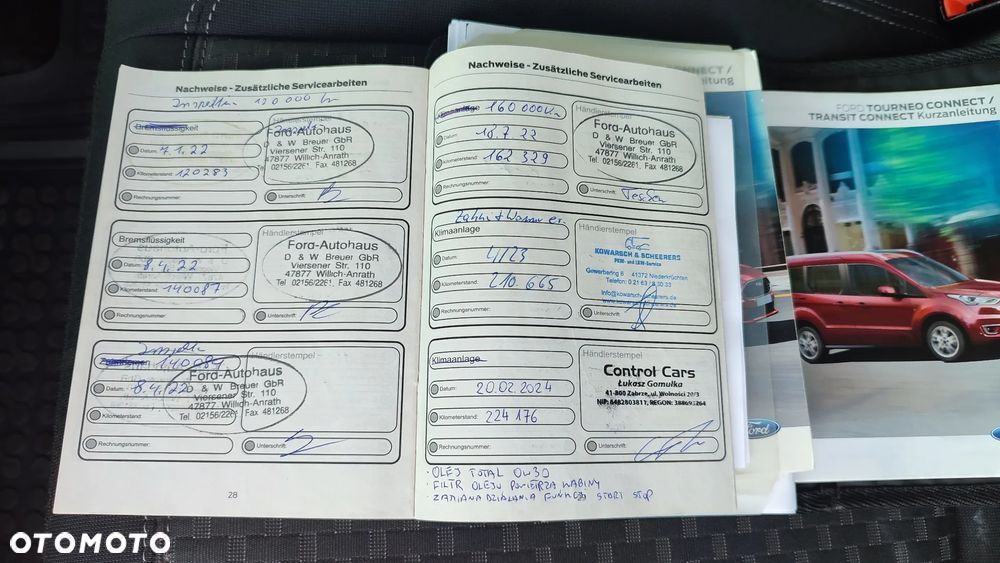 Nachweise - Zusätzliche Servicearbeiten
120 000 km
Bremsflüssigkeit
Händlerstempel
Ford-Autohaus
D & W Breuer GbR
Viersener Str. 110
47877 Willich-Anrath
Tel. 02156/2261, Fax 481268
Datum: 7.1.22
Kilometerstand: 120283
Rechnungsnummer:
Unterschrift:
Bremsflüssigkeit
Händlerstempel
Ford-Autohaus
D & W Breuer GbR
Viersener Str. 110
47877 Willich-Anrath
Tel. 02156/2261, Fax 481268
Datum: 8.4.22
Kilometerstand: 140087
Rechnungsnummer:
Unterschrift:
140087
Händlerstempel
Ford-Autohaus
D & W Breuer GbR
Viersener Str. 110
47877 Willich-Anrath
Tel. 02156/2261, Fax 481268
Datum: 8.4.22
Kilometerstand:
Rechnungsnummer:
Unterschrift:
28
Nachweise - Zusätzliche Servicearbeiten
Klimaanlage 160 000 km
Händlerstempel
Ford-Autohaus
D & W Breuer GbR
Viersener Str. 110
47877 Willich-Anrath
Tel. 02156/2261, Fax 481268
Datum: 18.7.22
Kilometerstand: 162 329
Rechnungsnummer:
Unterschrift:
Klimaanlage
Händlerstempel
KOWARSCH & SCHEERERS
PKW- und LKW-Service
41372 Niederkrüchten
Datum: 4/23
Kilometerstand: 210.665
Rechnungsnummer:
Unterschrift:
Klimaanlage
Händlerstempel
Control Cars
Łukasz Gomułka
41-800 Zabrze, ul. Wolności
NIP: 6482803811, REGON:
Datum: 20.02.2024
Kilometerstand: 224 176
Rechnungsnummer:
Unterschrift:
· OLEJ TOTAL 0W30
· FILTR OLEJU POWIETRZA KABINY
· ZAMIANA DZIAŁANIA FUNKCJI START STOP
NNECT /
eitung
FORD TOURNEO CONNECT /
TRANSIT CONNECT Kurzanleitung
Ford
OTOMOTO